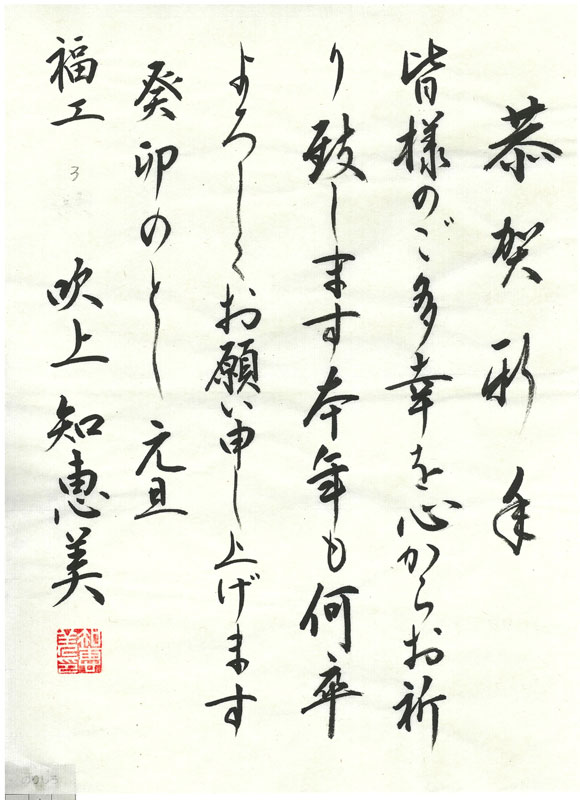 恭賀新年
皆様のご多幸を心からお祈
り致します本年も何卒
よろしくお願い申し上げます
癸卯のとし 元旦
福工 3 吹上 知恵美